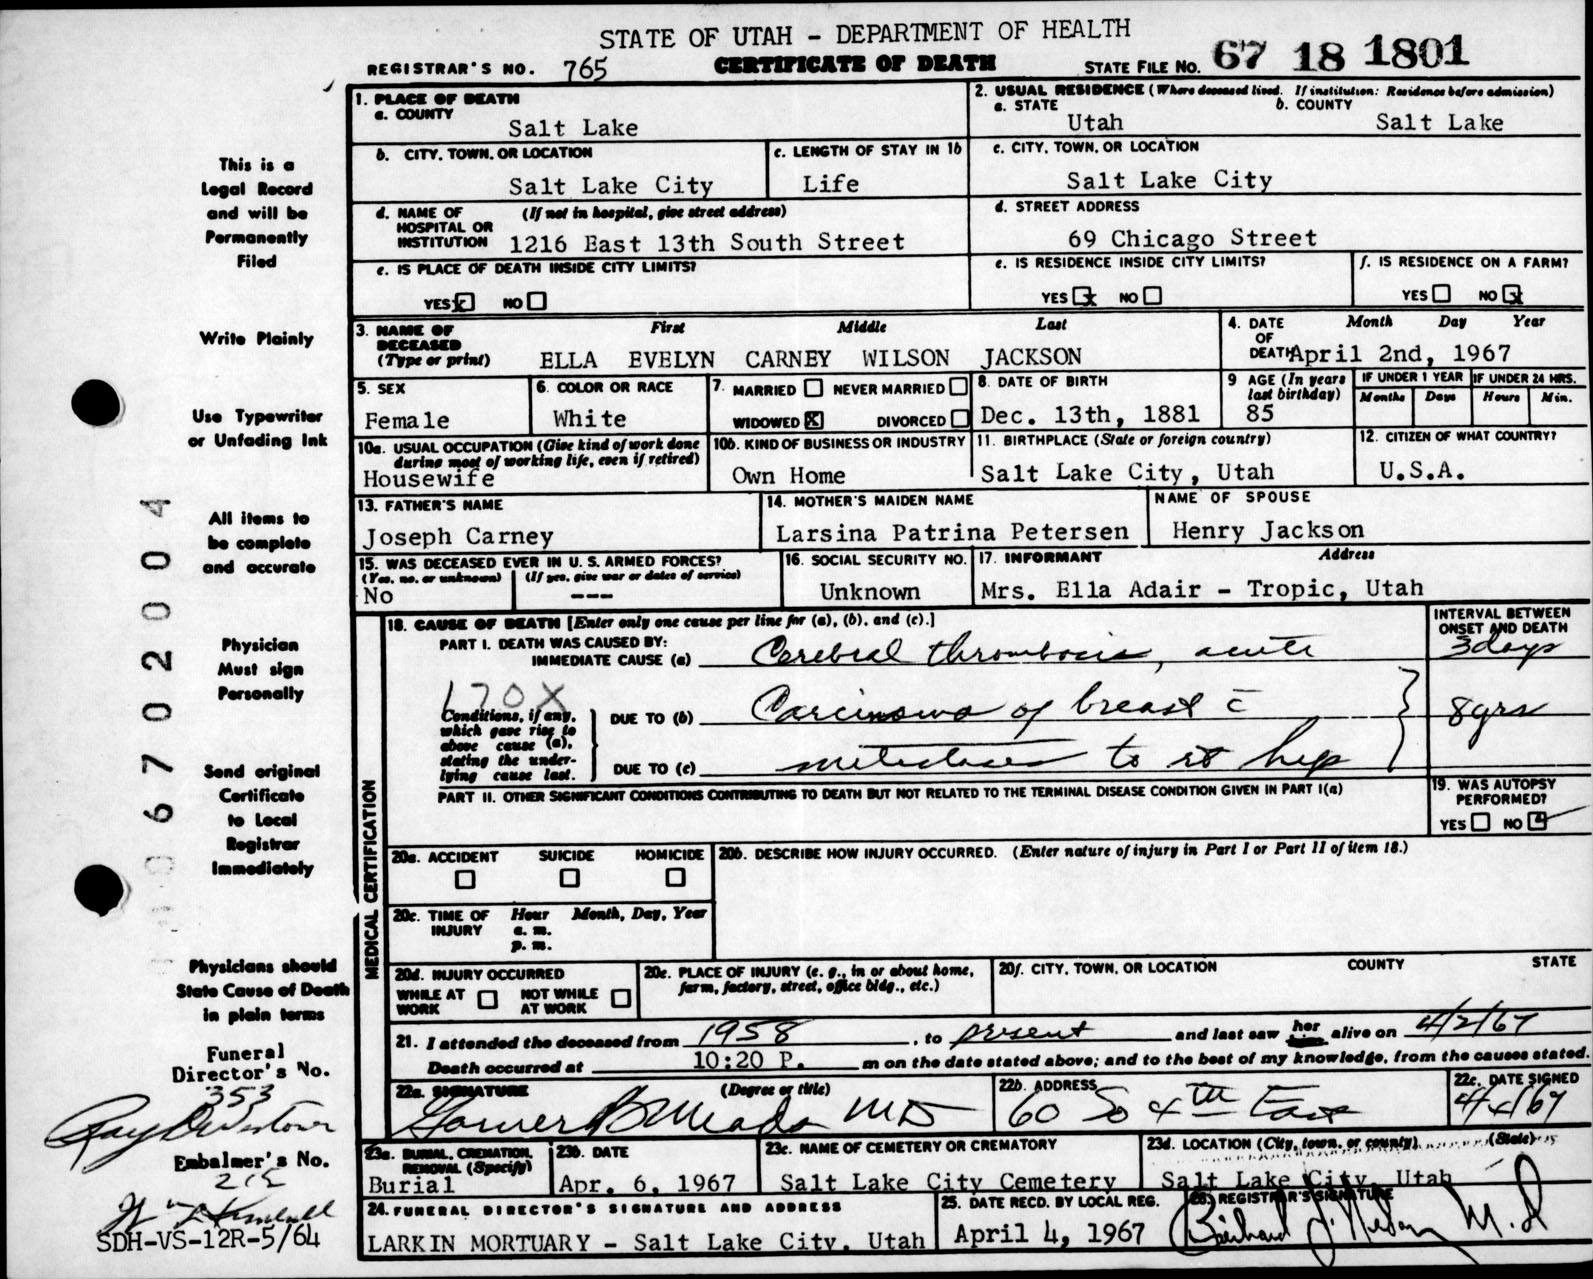 STATE OF UTAH - DEPARTMENT OF HEALTH
REGISTRAR'S NO. 765 CERTIFICATE OF DEATH STATE FILE NO. 67 18 1801
1. PLACE OF DEATH
a. COUNTY
Salt Lake
2. USUAL RESIDENCE (Where deceased lived. If institution: Residence before admission)
a. STATE b. COUNTY
Utah Salt Lake
b. CITY, TOWN, OR LOCATION
Salt Lake City
c. LENGTH OF STAY IN 1b
Life
c. CITY, TOWN, OR LOCATION
Salt Lake City
d. NAME OF HOSPITAL OR INSTITUTION (If not in hospital, give street address)
1216 East 13th South Street
d. STREET ADDRESS
69 Chicago Street
e. IS PLACE OF DEATH INSIDE CITY LIMITS?
YES x NO
e. IS RESIDENCE INSIDE CITY LIMITS?
YES x NO
f. IS RESIDENCE ON A FARM?
YES NO x
3. NAME OF DECEASED (Type or print) First Middle Last
ELLA EVELYN CARNEY WILSON JACKSON
4. DATE OF DEATH Month Day Year
April 2nd, 1967
5. SEX
Female
6. COLOR OR RACE
White
7. MARRIED NEVER MARRIED
WIDOWED X DIVORCED
8. DATE OF BIRTH
Dec. 13th, 1881
9 AGE (In years last birthday)
85
IF UNDER 1 YEAR
Months Days
IF UNDER 24 HRS.
Hours Min.
10a. USUAL OCCUPATION (Give kind of work done during most of working life, even if retired)
Housewife
10b. KIND OF BUSINESS OR INDUSTRY
Own Home
11. BIRTHPLACE (State or foreign country)
Salt Lake City, Utah
12. CITIZEN OF WHAT COUNTRY?
U.S.A.
13. FATHER'S NAME
Joseph Carney
14. MOTHER'S MAIDEN NAME
Larsina Patrina Petersen
NAME OF SPOUSE
Henry Jackson
15. WAS DECEASED EVER IN U. S. ARMED FORCES?
(Yes, no, or unknown) (If yes, give war or dates of service)
No ---
16. SOCIAL SECURITY NO.
Unknown
17. INFORMANT Address
Mrs. Ella Adair - Tropic, Utah
MEDICAL CERTIFICATION
18. CAUSE OF DEATH [Enter only one cause per line for (a), (b), and (c).]
INTERVAL BETWEEN ONSET AND DEATH
PART I. DEATH WAS CAUSED BY:
IMMEDIATE CAUSE (a) Cerebral thrombosis, acute 3 days
170X
Conditions, if any, which gave rise to above cause (a), stating the underlying cause last.
DUE TO (b) Carcinoma of breast c̄ 8 yrs
DUE TO (c) metastases to rt hip
PART II. OTHER SIGNIFICANT CONDITIONS CONTRIBUTING TO DEATH BUT NOT RELATED TO THE TERMINAL DISEASE CONDITION GIVEN IN PART I(a)
19. WAS AUTOPSY PERFORMED?
YES NO ✓
20a. ACCIDENT SUICIDE HOMICIDE
20b. DESCRIBE HOW INJURY OCCURRED. (Enter nature of injury in Part I or Part II of item 18.)
20c. TIME OF INJURY Hour Month, Day, Year
a. m.
p. m.
20d. INJURY OCCURRED
WHILE AT WORK NOT WHILE AT WORK
20e. PLACE OF INJURY (e. g., in or about home, farm, factory, street, office bldg., etc.)
20f. CITY, TOWN, OR LOCATION COUNTY STATE
21. I attended the deceased from 1958, to present and last saw her alive on 4/2/67
Death occurred at 10:20 P. m on the date stated above; and to the best of my knowledge, from the causes stated.
22a. SIGNATURE (Degree or title)
Garner B Meads MD
22b. ADDRESS
60 So 4th East
22c. DATE SIGNED
4/4/67
23a. BURIAL, CREMATION, REMOVAL (Specify)
Burial
23b. DATE
Apr. 6, 1967
23c. NAME OF CEMETERY OR CREMATORY
Salt Lake City Cemetery
23d. LOCATION (City, town, or county) (State)
Salt Lake City, Utah
24. FUNERAL DIRECTOR'S SIGNATURE AND ADDRESS
LARKIN MORTUARY - Salt Lake City, Utah
25. DATE RECD. BY LOCAL REG.
April 4, 1967
26. REGISTRAR'S SIGNATURE
M.D
This is a
Legal Record
and will be
Permanently
Filed
Write Plainly
Use Typewriter
or Unfading Ink
All items to
be complete
and accurate
Physician
Must sign
Personally
Send original
Certificate
to Local
Registrar
Immediately
Physicians should
State Cause of Death
in plain terms
Funeral
Director's No.
353
Embalmer's No.
SDH-VS-12R-5/64
0 6 7 0 2 0 0 4